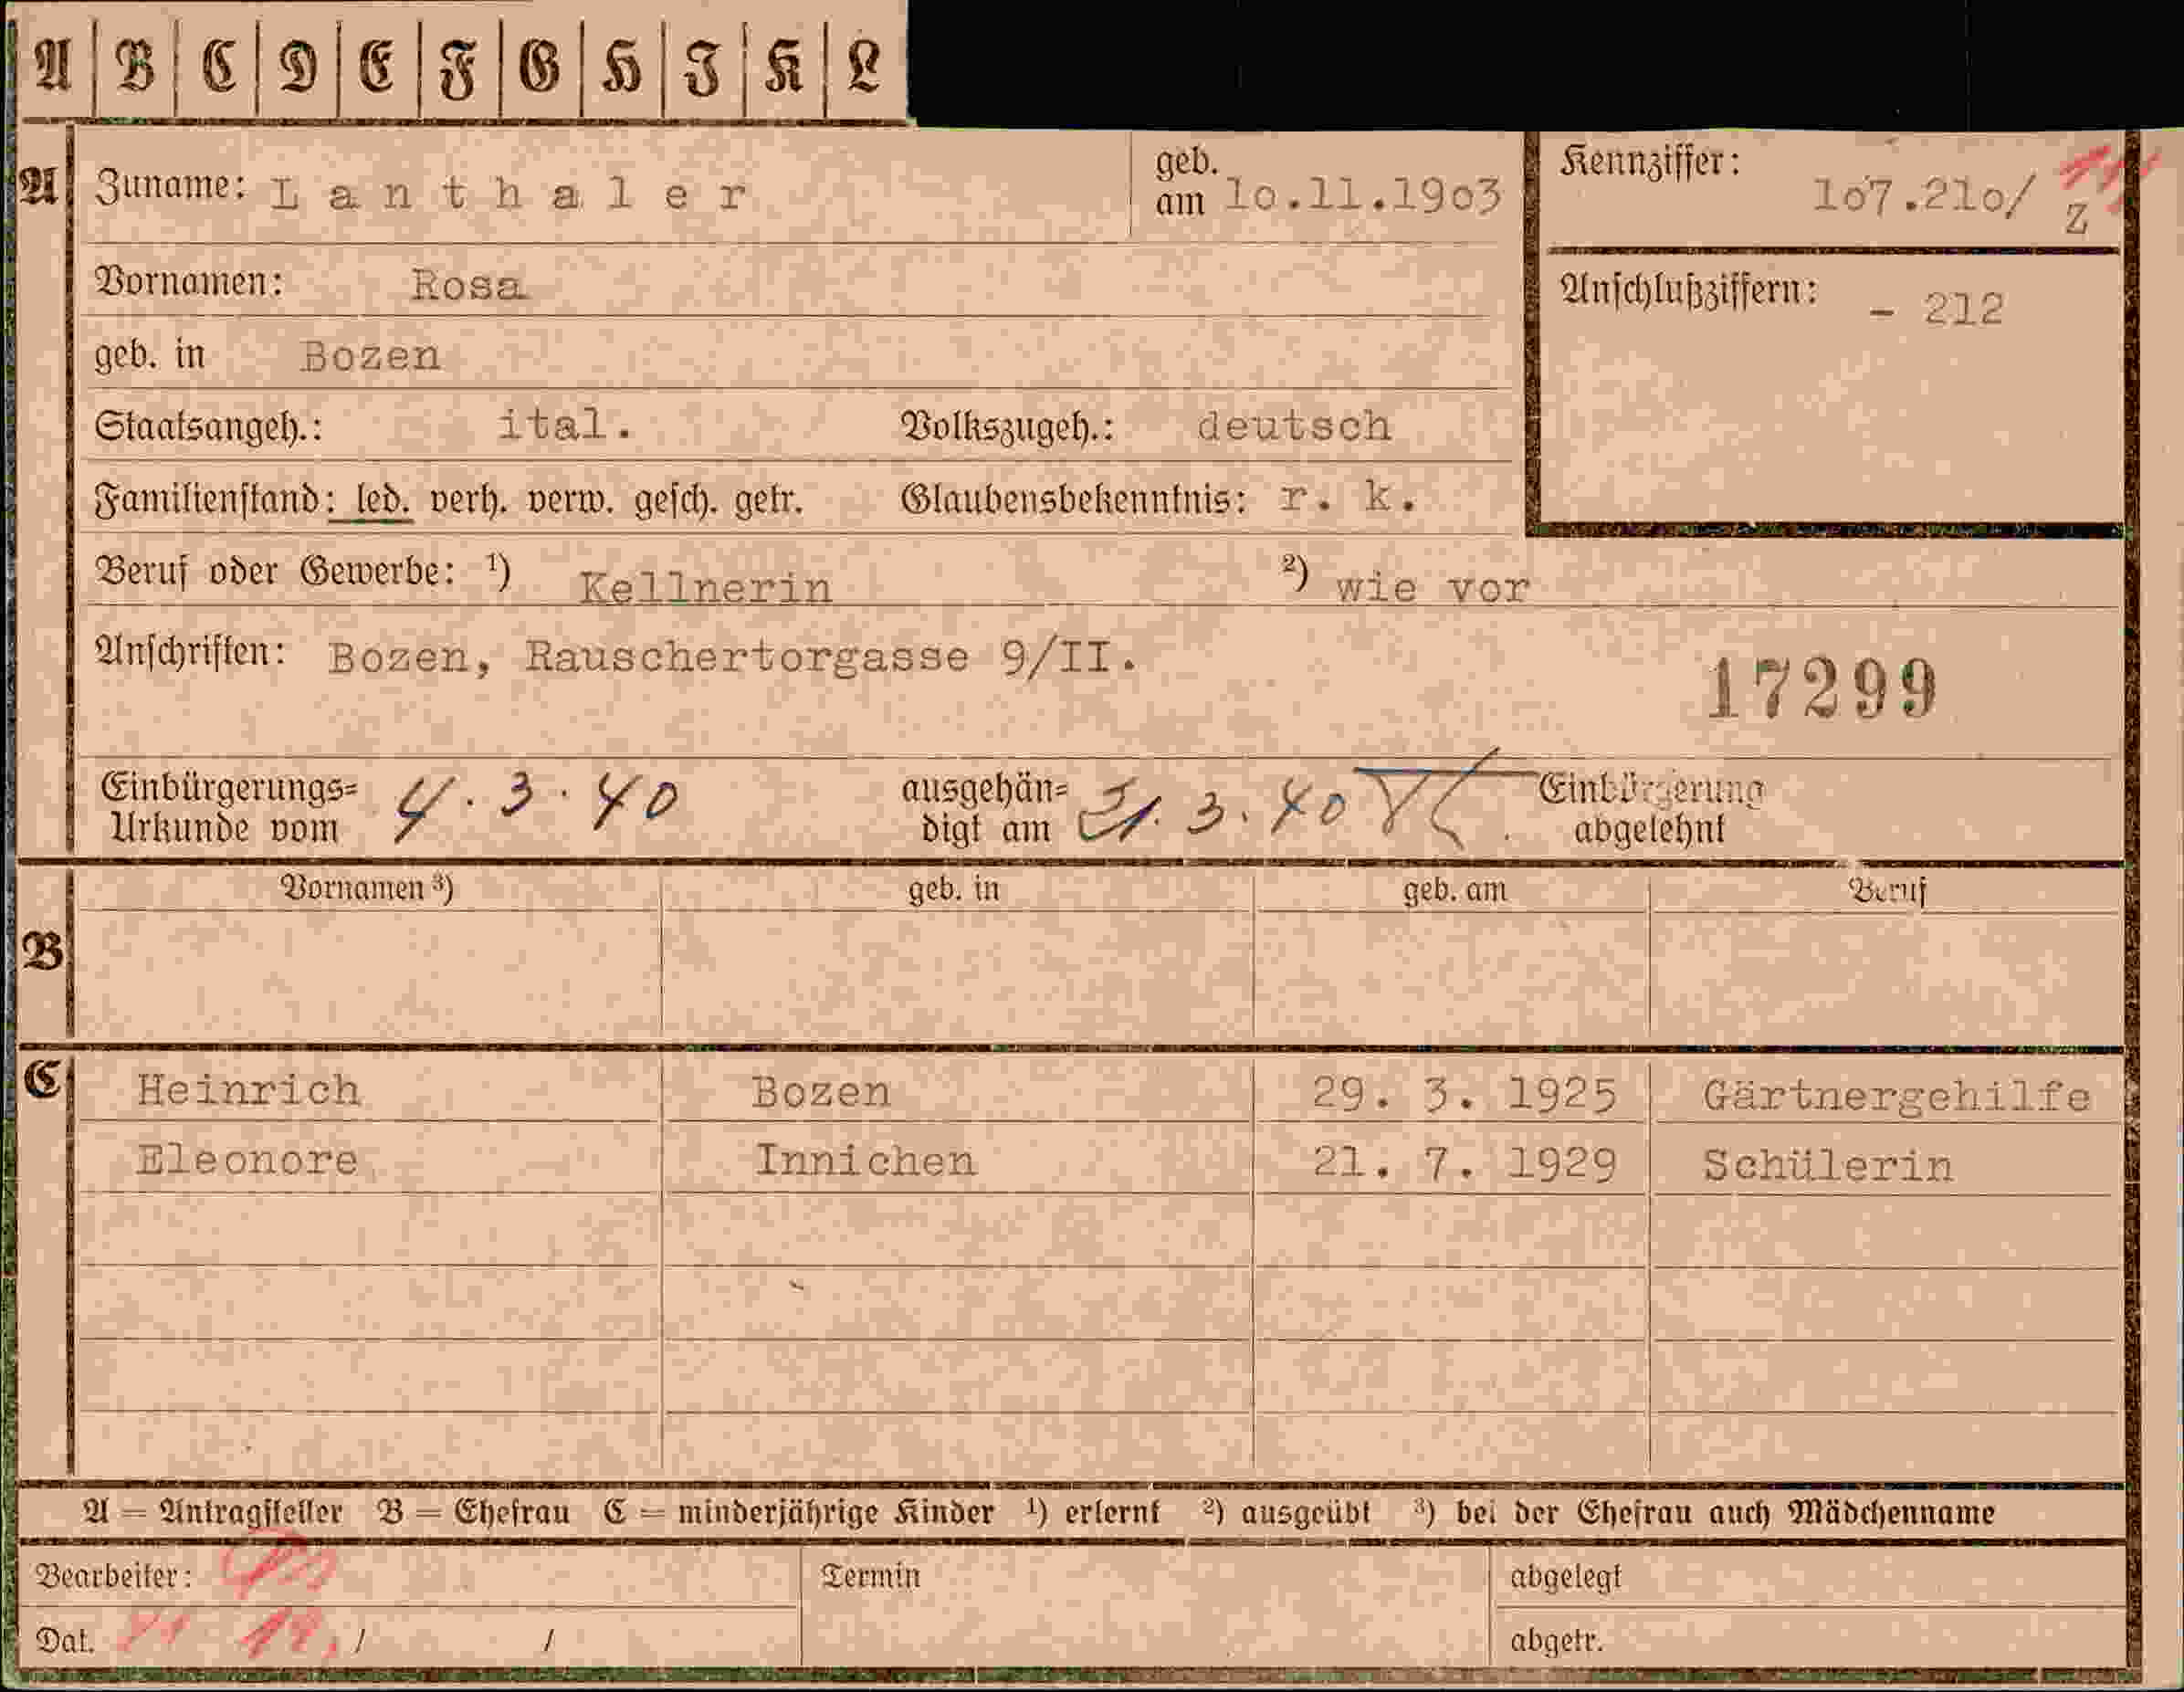 A B C D E F G H J K L
A Zuname: Lanthaler geb. am 10.11.1903 Kennziffer: 107.210/ Z
Vornamen: Rosa Anschlußziffern: - 212
geb. in Bozen
Staatsangeh.: ital. Volkszugeh.: deutsch
Familienstand: led. verh. verw. gesch. getr. Glaubensbekenntnis: r. k.
Beruf oder Gewerbe: ¹) Kellnerin ²) wie vor
Anschriften: Bozen, Rauschertorgasse 9/II.
17299
Einbürgerungs= ausgehän= Einbürgerung
Urkunde vom 4.3.40 digt am 3.40 abgelehnt
Vornamen ³) geb. in geb. am Beruf
B
C Heinrich Bozen 29. 3. 1925 Gärtnergehilfe
Eleonore Innichen 21. 7. 1929 Schülerin
A = Antragsteller B = Ehefrau C = minderjährige Kinder ¹) erlernt ²) ausgeübt ³) bei der Ehefrau auch Mädchenname
Bearbeiter: Termin abgelegt
Dat. / / abgetr.